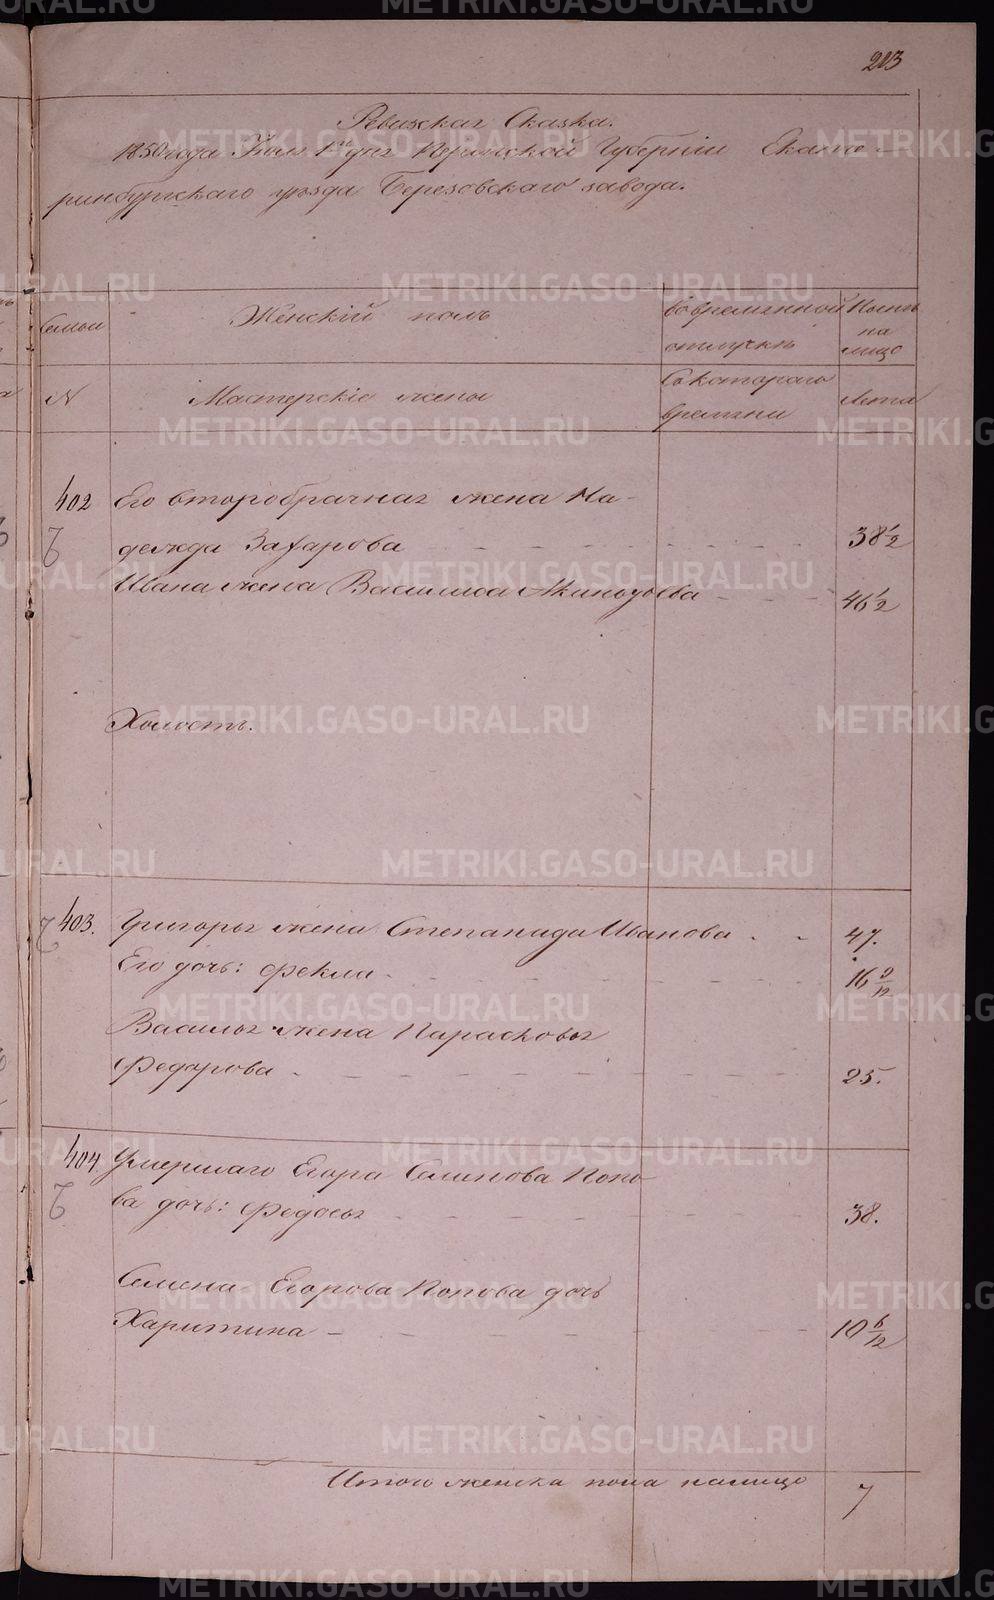 213
Ревизская Сказка.
1850 года Июля 1го дня Пермской Губерніи Екате-
ринбургскаго уѣзда Березовскаго завода.
Семьи
Женскій полъ
Во временной
отлучкѣ
Нынѣ
на
лицо
N
Мастерскіе жены
Съ котораго
времяни
Лета
402
Его второбрачная жена На-
дежда Захарова
38 1/2
Ивана жена Василиса
46 1/2
Холостъ.
403.
Григорья жена Степанида Иванова
47.
Его дочь: Фекла
16 9/12
Василья жена Парасковья
Федорова
25.
404
Умершаго Егора Семенова Попо-
ва дочь: Федосья
38.
Семена Егорова Попова дочь
Харитина
10 6/12
Итого женска пола налицо
7
METRIKI.GASO-URAL.RU